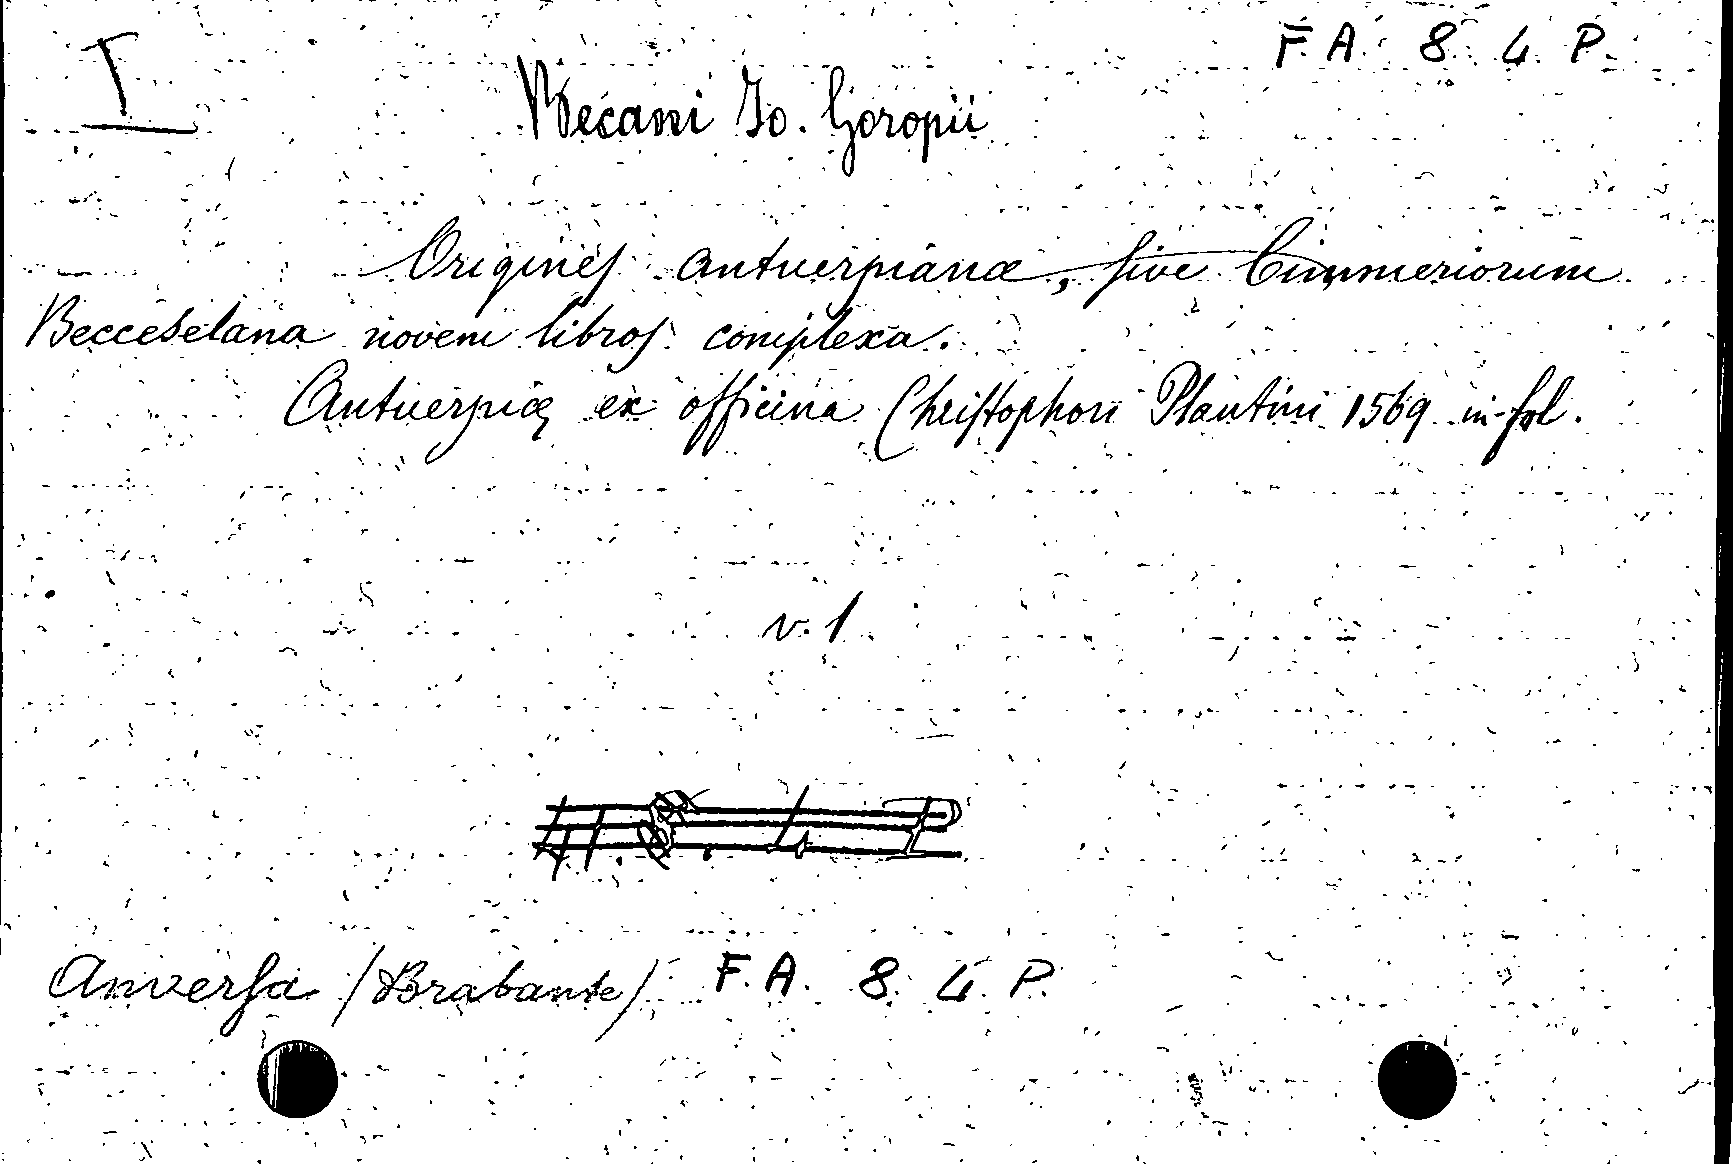 I
F. A. 8. 4. P.
Becani Jo. Goropii
Origines antuerpianæ, sive Cimmeriorum
Becceselana novem libros complexa.
Antuerpiæ ex officina Christophori Plantini 1569 in-fol.
v. 1
Anversa /Brabante/ F. A. 8. 4. P.